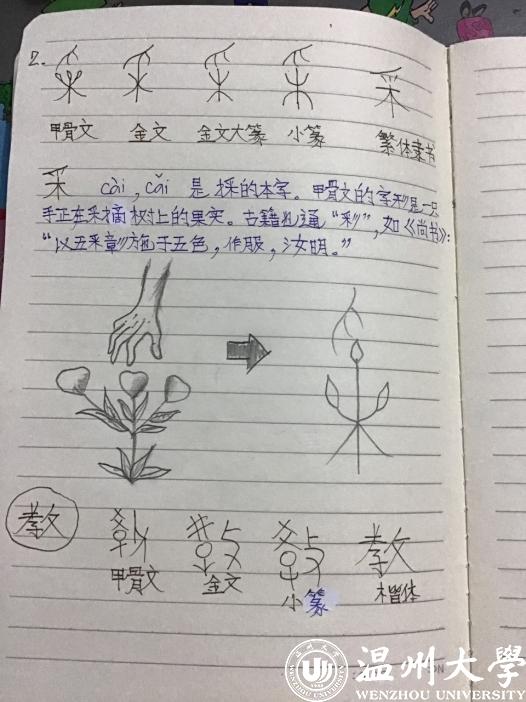 2.
甲骨文 金文 金文大篆 小篆 繁体隶书
采 cài, cǎi 是採的本字。甲骨文的字形是一只
手正在采摘树上的果实。古籍也通“彩”,如《尚书》:
“以五采章施于五色,作服,汝明。”
教
甲骨文 金文 小篆 楷体
温州大學
WENZHOU UNIVERSITY